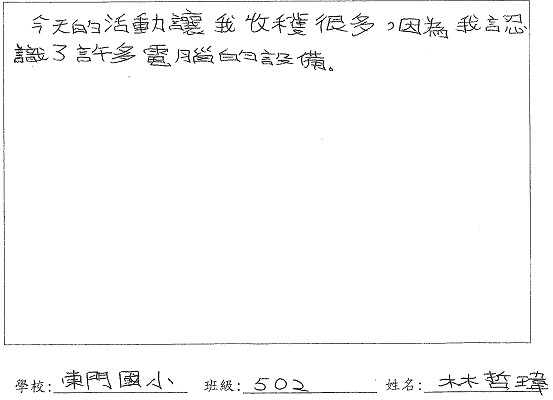 今天的活動讓我收穫很多，因為我認
識了許多電腦的設備。
學校：東門國小 班級：502 姓名：林哲瑋